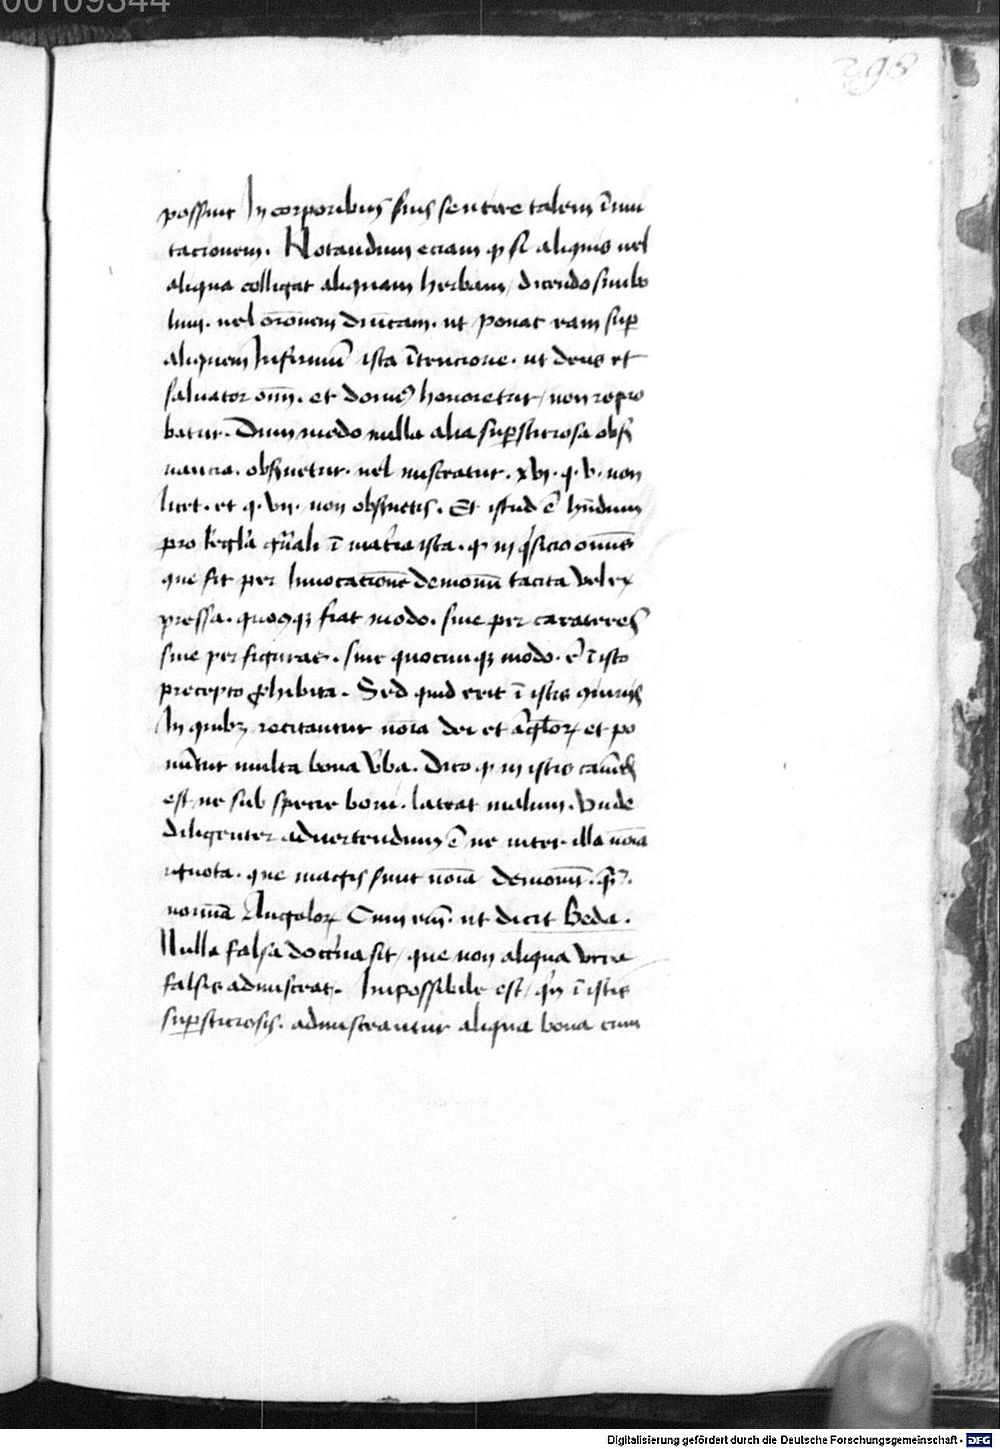 00109344
398
possunt In corporibus suis sentire talem īmu
tacionem. Notandum eciam ꝙ si aliquis uel
aliqua colligat aliquam herbam / dicendo simbo
lum. uel orōnem dnīcam. ut ponat eam sup
aliquem Infirmū ista ītencione. ut deus et
saluator om̄. et domin9 honoretur / non repro
batur. Dum modo nulla alia supsticiosa obs
uancia. obsuetur. uel misceatur. xxvi. q. v. non
licet. et q. vii. non obsuetis. Et istud ē hn̄dum
pro regla gn̄ali ī materia ista. ꝙ inqisicio omnis
que fit per Inuocacionē demonū tacita vel ex
pressa. quocūqꝫ fiat modo. siue per carateres
siue per figuras. siue quocunqꝫ modo. ē ī isto
precepto ꝓhibita. Sed quid erit ī istis
In quibꝫ recitantur noīa dei et āgloꝝ et po
nūtur multa bona vba. Dico ꝙ in istis cauēd
est / ne sub specie boni. lateat malum. Vnde
diligenter aduertendum ē ne inter illa noīa
ignota. que magis sunt noīa demonū. qm̄.
nomīa Angeloꝝ Cum eīm. ut dicit Beda.
Nulla falsa doctrīa sit / que non aliqua vera
falsis admisceat. Impossibile est / qn̄ ī istis
supsticiosis. admisceantur aliqua bona cum
Digitalisierung gefördert durch die Deutsche Forschungsgemeinschaft - DFG